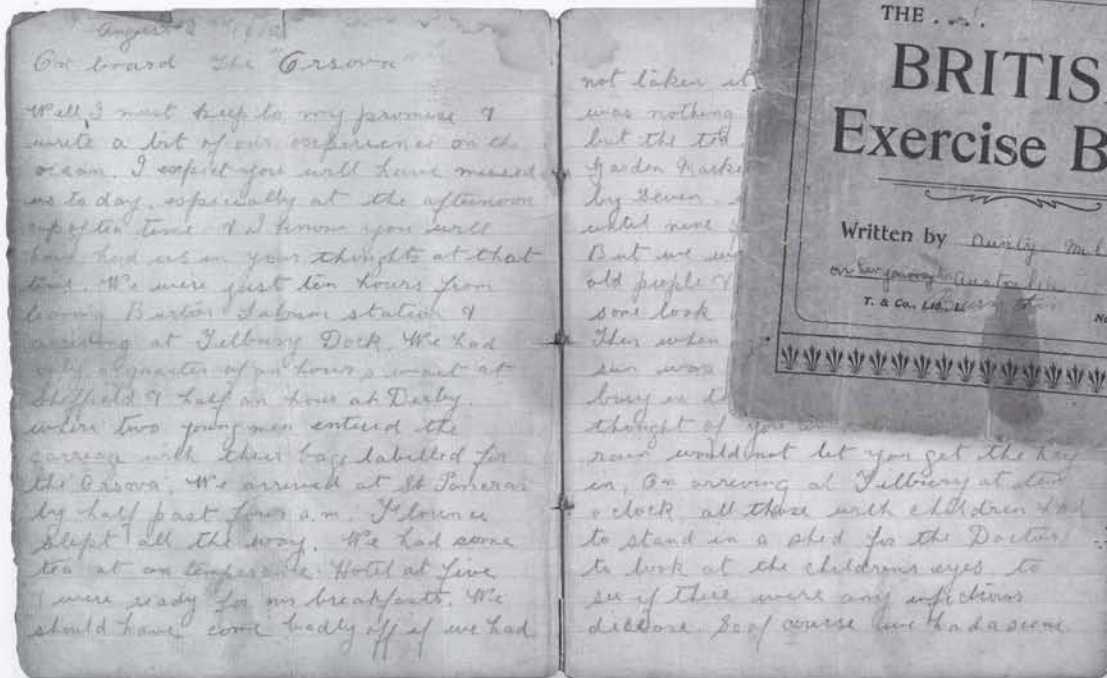 August 2 1912
On board the "Orsova"
Well, I must keep to my promise &
write a bit of our experience on the
ocean. I expect you will have missed
us to day, especially at the afternoon
cup of tea time & I know you will
have had us in your thoughts at that
time. We were just ten hours from
leaving Burton Salmon station &
arriving at Tilbury Dock. We had
only a quarter of an hour's wait at
Sheffield & half an hour at Derby.
where two young men entered the
carriage with their bags labelled for
the Orsova. We arrived at St Pancras
by half past four a.m. Florence
slept all the way. We had some
tea at an temperance Hotel at five
& were ready for our breakfasts. We
should have come badly off if we had
not taken it
was nothing
but the tea
Garden Marke
by Seven.
until nine
But we
old people &
some look
Then when
sun was
busy in
thought of you
rain would not let you get the hay
in. On arriving at Tilbury at ten
o'clock all those with children had
to stand in a shed for the Doctor
to look at the childrens eyes to
see if there were any infectious
disease. So of course we had a
THE . . . .
BRITIS
Exercise B
Written by Aunty
on her journey to Australia
T. & Co., Ltd., L.